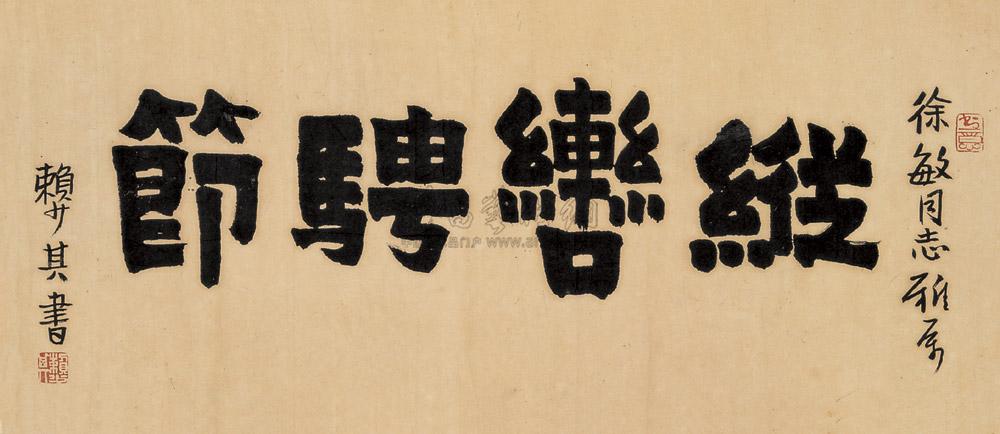 徐敏同志雅属
縱轡騁節
賴少其書